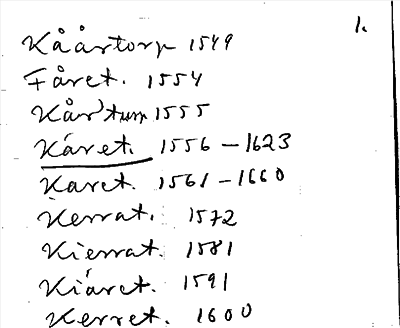 1.
Kåårtorp 1549
Fåret. 1554
Kår'torp 1555
Káret. 1556 – 1623
Karet. 1561 – 1660
Kerrat. 1572
Kierrat. 1581
Kiáret. 1591
Kerret. 1600